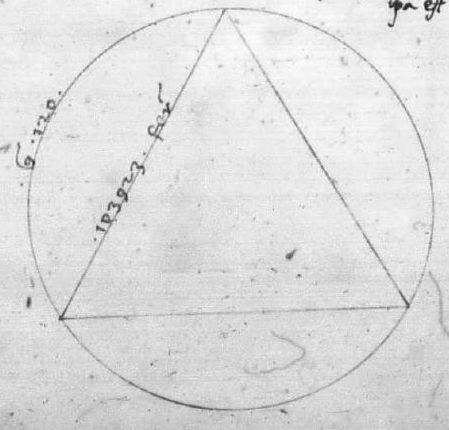 ipa est
g .120.
.103923. fer̄